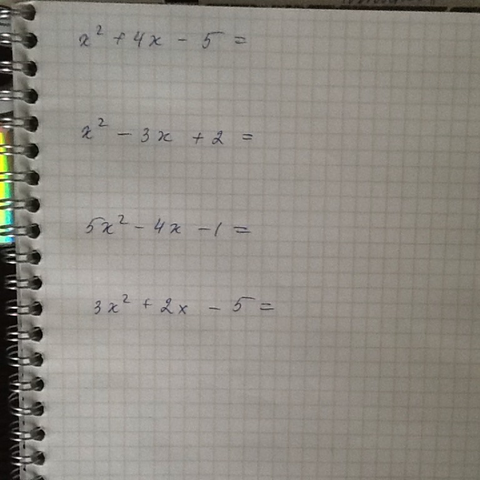 x² + 4x - 5 =
x² - 3x + 2 =
5x² - 4x - 1 =
3x² + 2x - 5 =